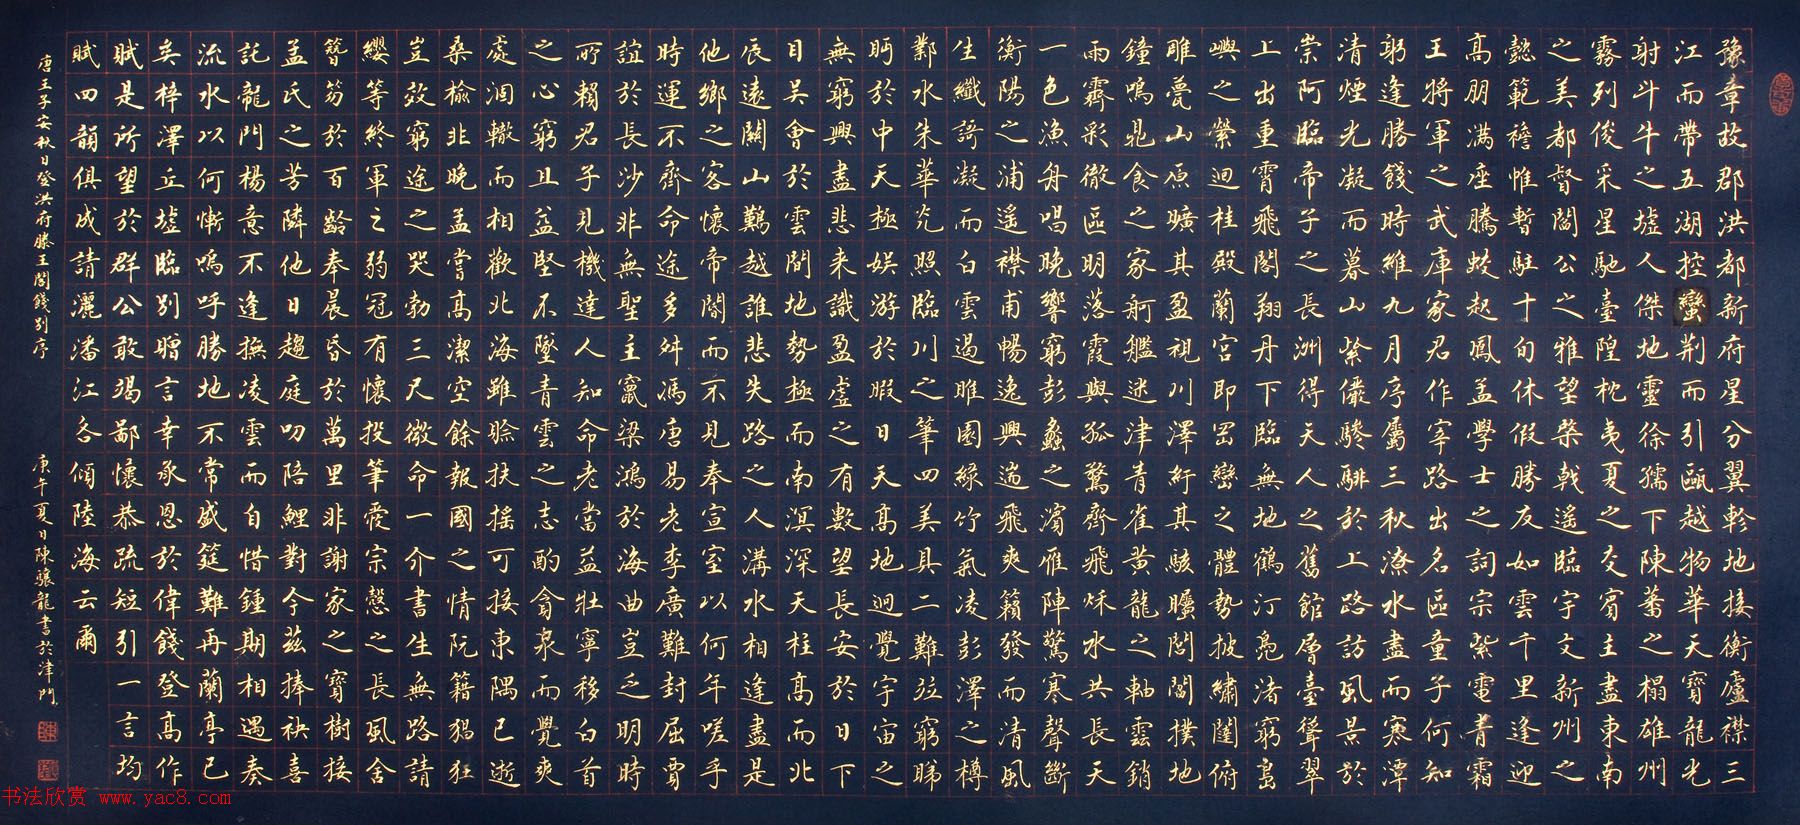 豫章故郡洪都新府星分翼軫地接衡廬襟三
江而帶五湖控蠻荊而引甌越物華天寶龍光
射斗牛之墟人傑地靈徐孺下陳蕃之榻雄州
霧列俊采星馳臺隍枕夷夏之交賓主盡東南
之美都督閻公之雅望棨戟遙臨宇文新州之
懿範襜惟暫駐十旬休假勝友如雲千里逢迎
高朋满座騰蛟起鳳孟學士之詞宗紫電青霜
王將軍之武庫家君作宰路出名區童子何知
躬逢勝餞時維九月序屬三秋潦水盡而寒潭
清煙光凝而暮山紫儼驂騑於上路訪風景於
崇阿臨帝子之長洲得天人之舊館層臺聳翠
上出重霄飛閣翔丹下臨無地鶴汀鳧渚窮島
嶼之縈迴桂殿蘭宮即岡巒之體勢披繡闥俯
雕甍山原曠其盈視川澤紆其駭矚閭閻撲地
鐘鳴鼎食之家舸艦迷津青雀黃龍之軸雲銷
雨霽彩徹區明落霞與孤鶩齊飛秋水共長天
一色漁舟唱晚響窮彭蠡之濱雁陣驚寒聲斷
衡陽之浦遙襟甫暢逸興遄飛爽籟發而清風
生纖謌凝而白雲遏睢園綠竹氣凌彭澤之樽
鄴水朱華光照臨川之筆四美具二難並窮睇
眄於中天極娛游於暇日天高地迥覺宇宙之
無窮興盡悲來識盈虛之有數望長安於日下
目吳會於雲間地勢極而南溟深天柱高而北
辰遠關山難越誰悲失路之人溝水相逢盡是
他鄉之客懷帝閽而不見奉宣室以何年嗟乎
時運不齊命途多舛馮唐易老李廣難封屈賈
誼於長沙非無聖主竄梁鴻於海曲豈乏明時
所賴君子見機達人知命老當益壯寧移白首
之心窮且益堅不墜青雲之志酌貪泉而覺爽
處涸轍而相歡北海雖賒扶搖可接東隅已逝
桑榆非晚孟嘗高潔空餘報國之情阮籍猖狂
豈效窮途之哭勃三尺微命一介書生無路請
纓等終軍之弱冠有懷投筆愛宗愨之長風舍
簪笏於百齡奉晨昏於萬里非謝家之寶樹接
孟氏之芳隣他日趨庭叨陪鯉對今茲捧袂喜
託龍門楊意不逢撫凌雲而自惜鍾期相遇奏
流水以何慚嗚呼勝地不常盛筵難再蘭亭已
矣梓澤丘墟臨別贈言幸承恩於偉餞登高作
賦是所望於群公敢竭鄙懷恭疏短引一言均
賦四韻俱成請灑潘江各傾陸海云爾
唐王子安秋日登洪府滕王閣餞別序
庚午夏日陳驤龍書於津門
书法欣赏 www.yac8.com